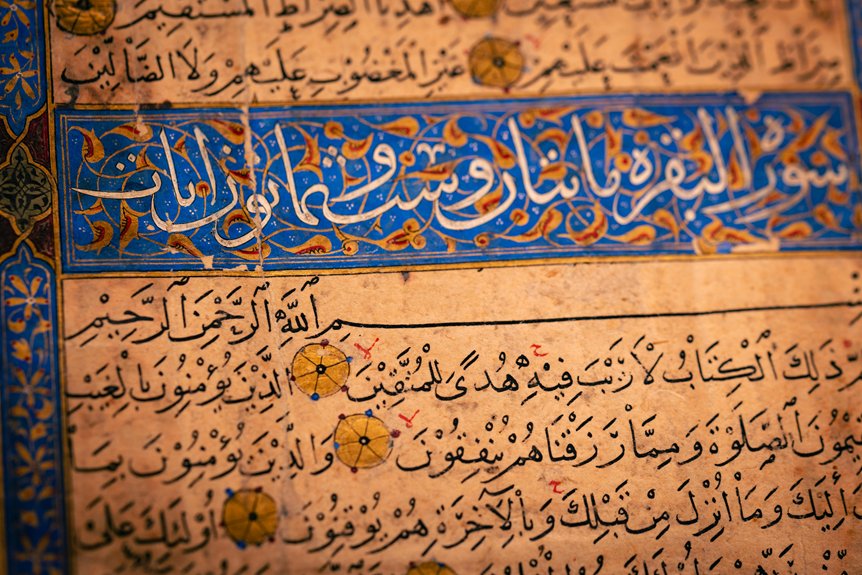 نَسْتَعِينُ اهْدِنَا الصِّرَاطَ الْمُسْتَقِيمَ
صِرَاطَ الَّذِينَ أَنْعَمْتَ عَلَيْهِمْ غَيْرِ الْمَغْضُوبِ عَلَيْهِمْ وَلَا الضَّالِّينَ
سورة البقره مايتان وست وثمانون ايات
بِسْمِ اللَّهِ الرَّحْمَنِ الرَّحِيمِ
ذَلِكَ الْكِتَابُ لَا رَيْبَ فِيهِ هُدًى لِلْمُتَّقِينَ الَّذِينَ يُؤْمِنُونَ بِالْغَيْبِ
يمُونَ الصَّلَوٰةَ وَمِمَّا رَزَقْنَاهُمْ يُنْفِقُونَ وَالَّذِينَ يُؤْمِنُونَ بِمَا
إِلَيْكَ وَمَا أُنْزِلَ مِنْ قَبْلِكَ وَبِالْآخِرَةِ هُمْ يُوقِنُونَ أُولَئِكَ عَلَى